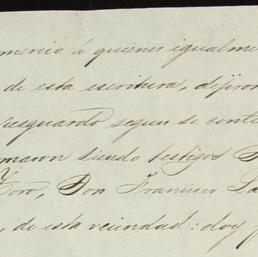 mercio á quienes igualme
de esta escritura, dijeron
resguardo segun se conti
maron siendo testigos
Toro, Don Francisco La
, de esta vecindad: doy